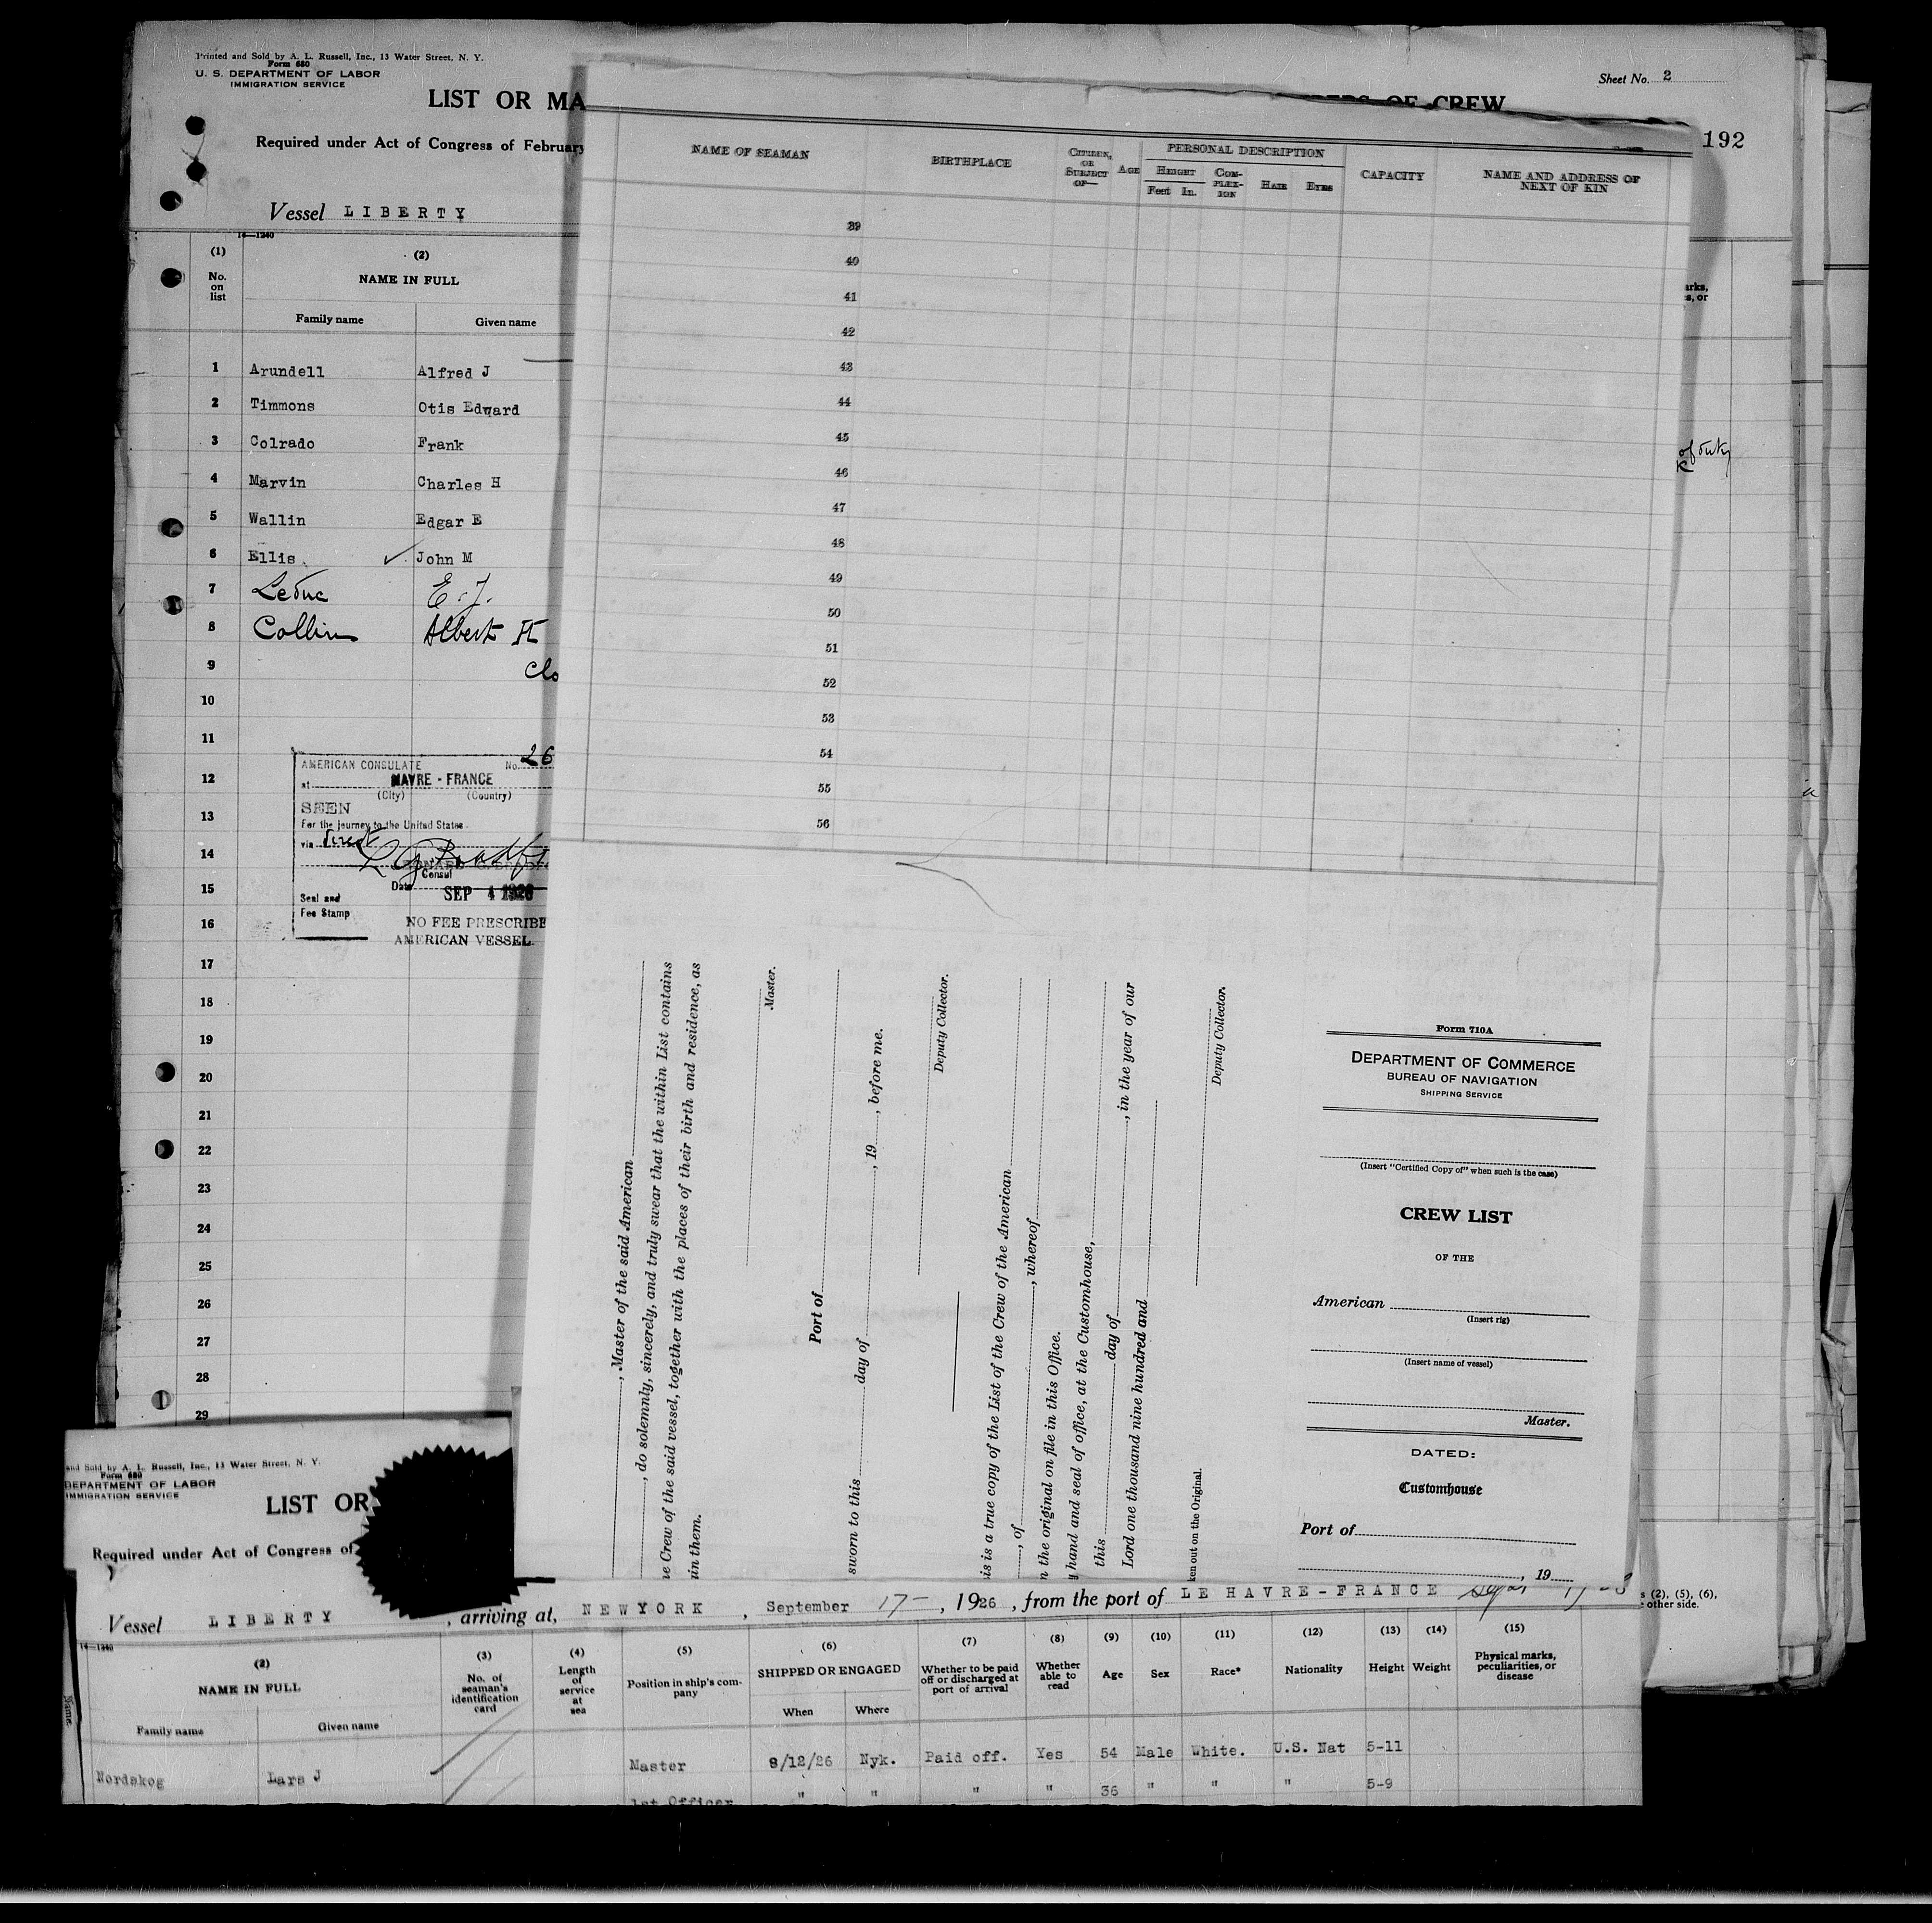 Printed and Sold by A. L. Russell, Inc., 13 Water Street, N. Y.
Form 680
U. S. DEPARTMENT OF LABOR
IMMIGRATION SERVICE
Sheet No. 2
LIST OR MA
OF CREW
Required under Act of Congress of February
192
Vessel LIBERTY
14—1240
(1)
No. on list
(2)
NAME IN FULL
Family name Given name
1 Arundell Alfred J
2 Timmons Otis Edward
3 Colrado Frank
4 Marvin Charles H
5 Wallin Edgar E
6 Ellis John M
7 Leduc E. J.
8 Collins Albert H
9 Clo
10
11
12
13
14
15
16
17
18
19
20
21
22
23
24
25
26
27
28
29
AMERICAN CONSULATE No. 26
at HAVRE - FRANCE
(City) (Country)
SEEN
For the journey to the United States
via direct
Consul
Date SEP 4 1926
Seal and
Fee Stamp
NO FEE PRESCRIBE
AMERICAN VESSEL.
NAME OF SEAMAN
BIRTHPLACE
CITIZEN, OR SUBJECT OF—
AGE
PERSONAL DESCRIPTION
HEIGHT
Feet In.
COM-PLEX-ION
HAIR
EYES
CAPACITY
NAME AND ADDRESS OF
NEXT OF KIN
39
40
41
42
43
44
45
46
47
48
49
50
51
52
53
54
55
56
arks,
s, or
, Master of the said American
, do solemnly, sincerely, and truly swear that the within List contains
e Crew of the said vessel, together with the places of their birth and residence, as
in them.
Master.
Port of
sworn to this day of , 19 , before me.
Deputy Collector.
is is a true copy of the List of the Crew of the American
, of , whereof
n the original on file in this Office.
y hand and seal of office, at the Customhouse,
this day of , in the year of our
Lord one thousand nine hundred and
Deputy Collector.
ken out on the Original.
Form 710A
DEPARTMENT OF COMMERCE
BUREAU OF NAVIGATION
SHIPPING SERVICE
(Insert "Certified Copy of" when such is the case)
CREW LIST
OF THE
American
(Insert rig)
(Insert name of vessel)
Master.
DATED:
Customhouse
Port of
, 19
s (2), (5), (6),
other side.
and Sold by A. L. Russell, Inc., 13 Water Street, N. Y.
Form 680
DEPARTMENT OF LABOR
IMMIGRATION SERVICE
LIST OR
Required under Act of Congress of
Vessel LIBERTY, arriving at, NEWYORK, September 17—, 1926, from the port of LE HAVRE-FRANCE
14—1240
(2)
NAME IN FULL
Family name Given name
(3)
No. of seaman's identification card
(4)
Length of service at sea
(5)
Position in ship's com-pany
(6)
SHIPPED OR ENGAGED
When Where
(7)
Whether to be paid off or discharged at port of arrival
(8)
Whether able to read
(9)
Age
(10)
Sex
(11)
Race*
(12)
Nationality
(13)
Height
(14)
Weight
(15)
Physical marks, peculiarities, or disease
Name
Nordskog Lars J Master 8/12/26 Nyk. Paid off. Yes 54 Male White. U.S. Nat 5-11
1st Officer " " " " 36 " " " 5-9